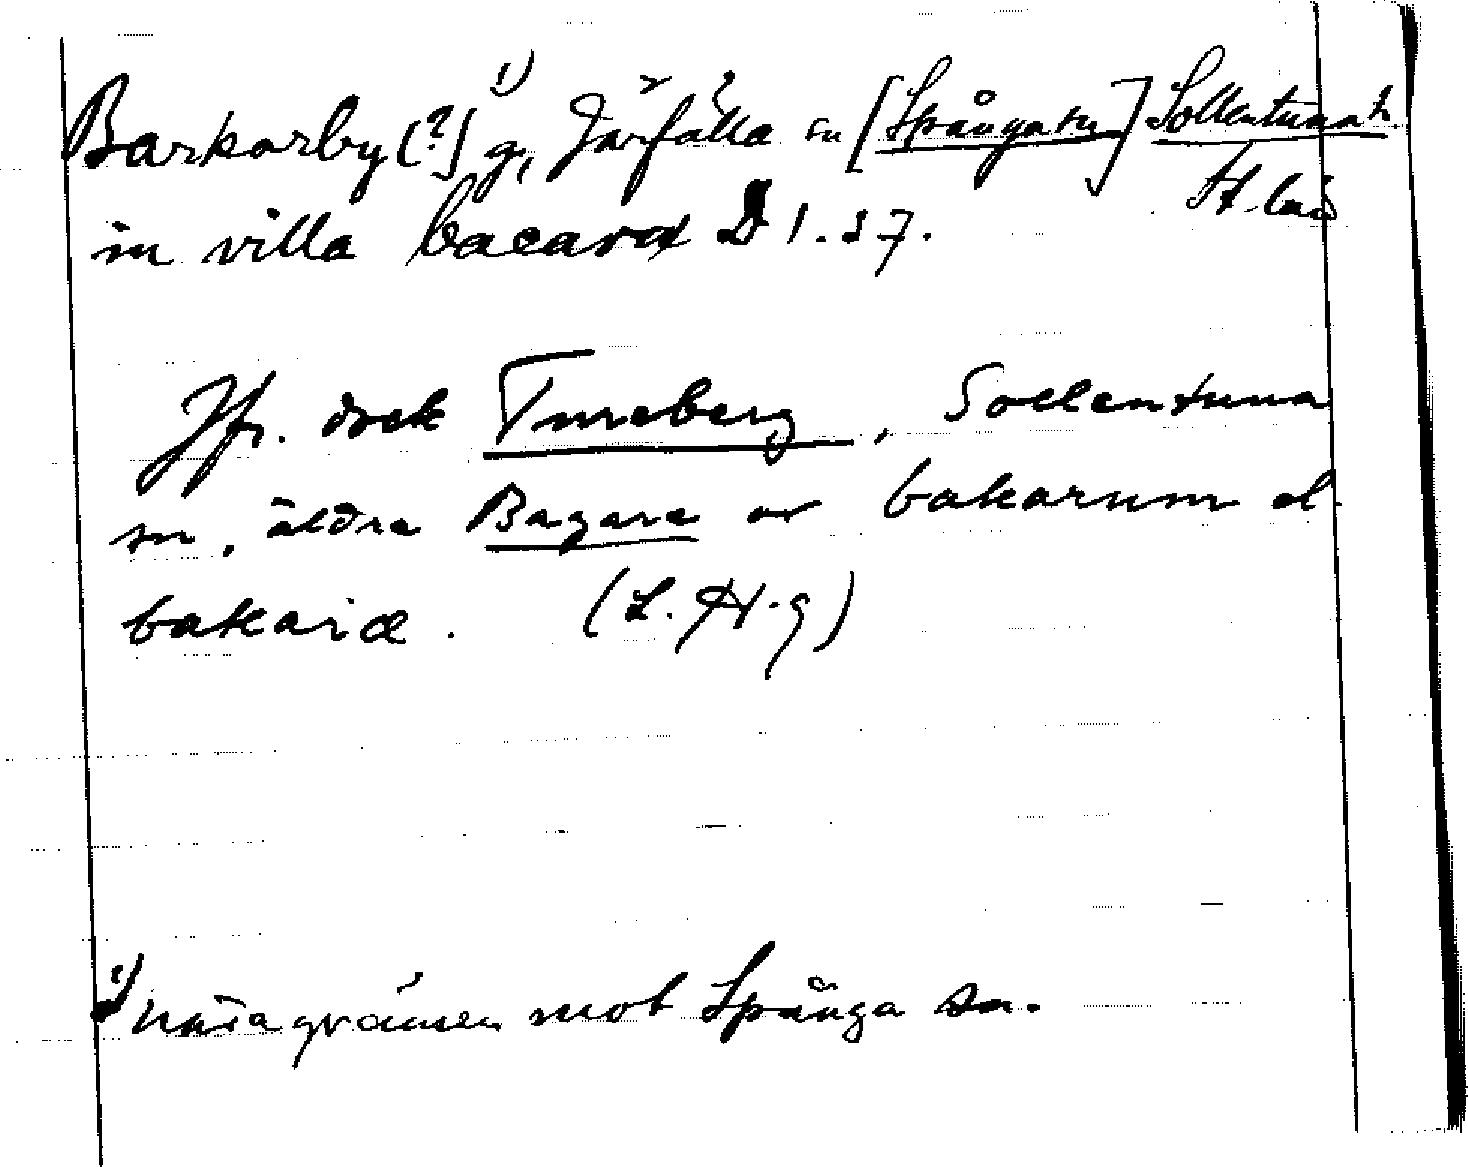 Barkarby (?) ¹⁾ g, Järfälla sn [Spånga sn] Sollentuna h
St. län
in villa bacara D 1. 37.
Jfr. dock Tureberg, Sollentuna
sn, äldre Bagara av bakarum el.
bakaræ. (L. H-g)
¹⁾ nära gränsen mot Spånga sn.